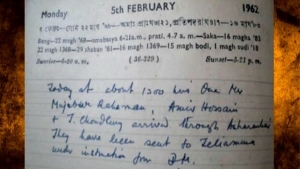 Monday 5th FEBRUARY 1962
Beng—22 magh 68—amabasya 6-11a.m., prati. 4-7 a.m.—Saka—16 magha 83
22 magh 1368—29 shaban 81—16 magh 1369—15 magh bodi, 1 magh sudi 18
Sunrise—6-20 a.m. (36-329) Sunset—5-21 p.m.
Today at about 1300 hrs One Mr
Mujibur Rahaman, Amir Hossain
& T. Choudhury arrived through Asharambari
They have been sent to Teliamura
under instruction from D.M.